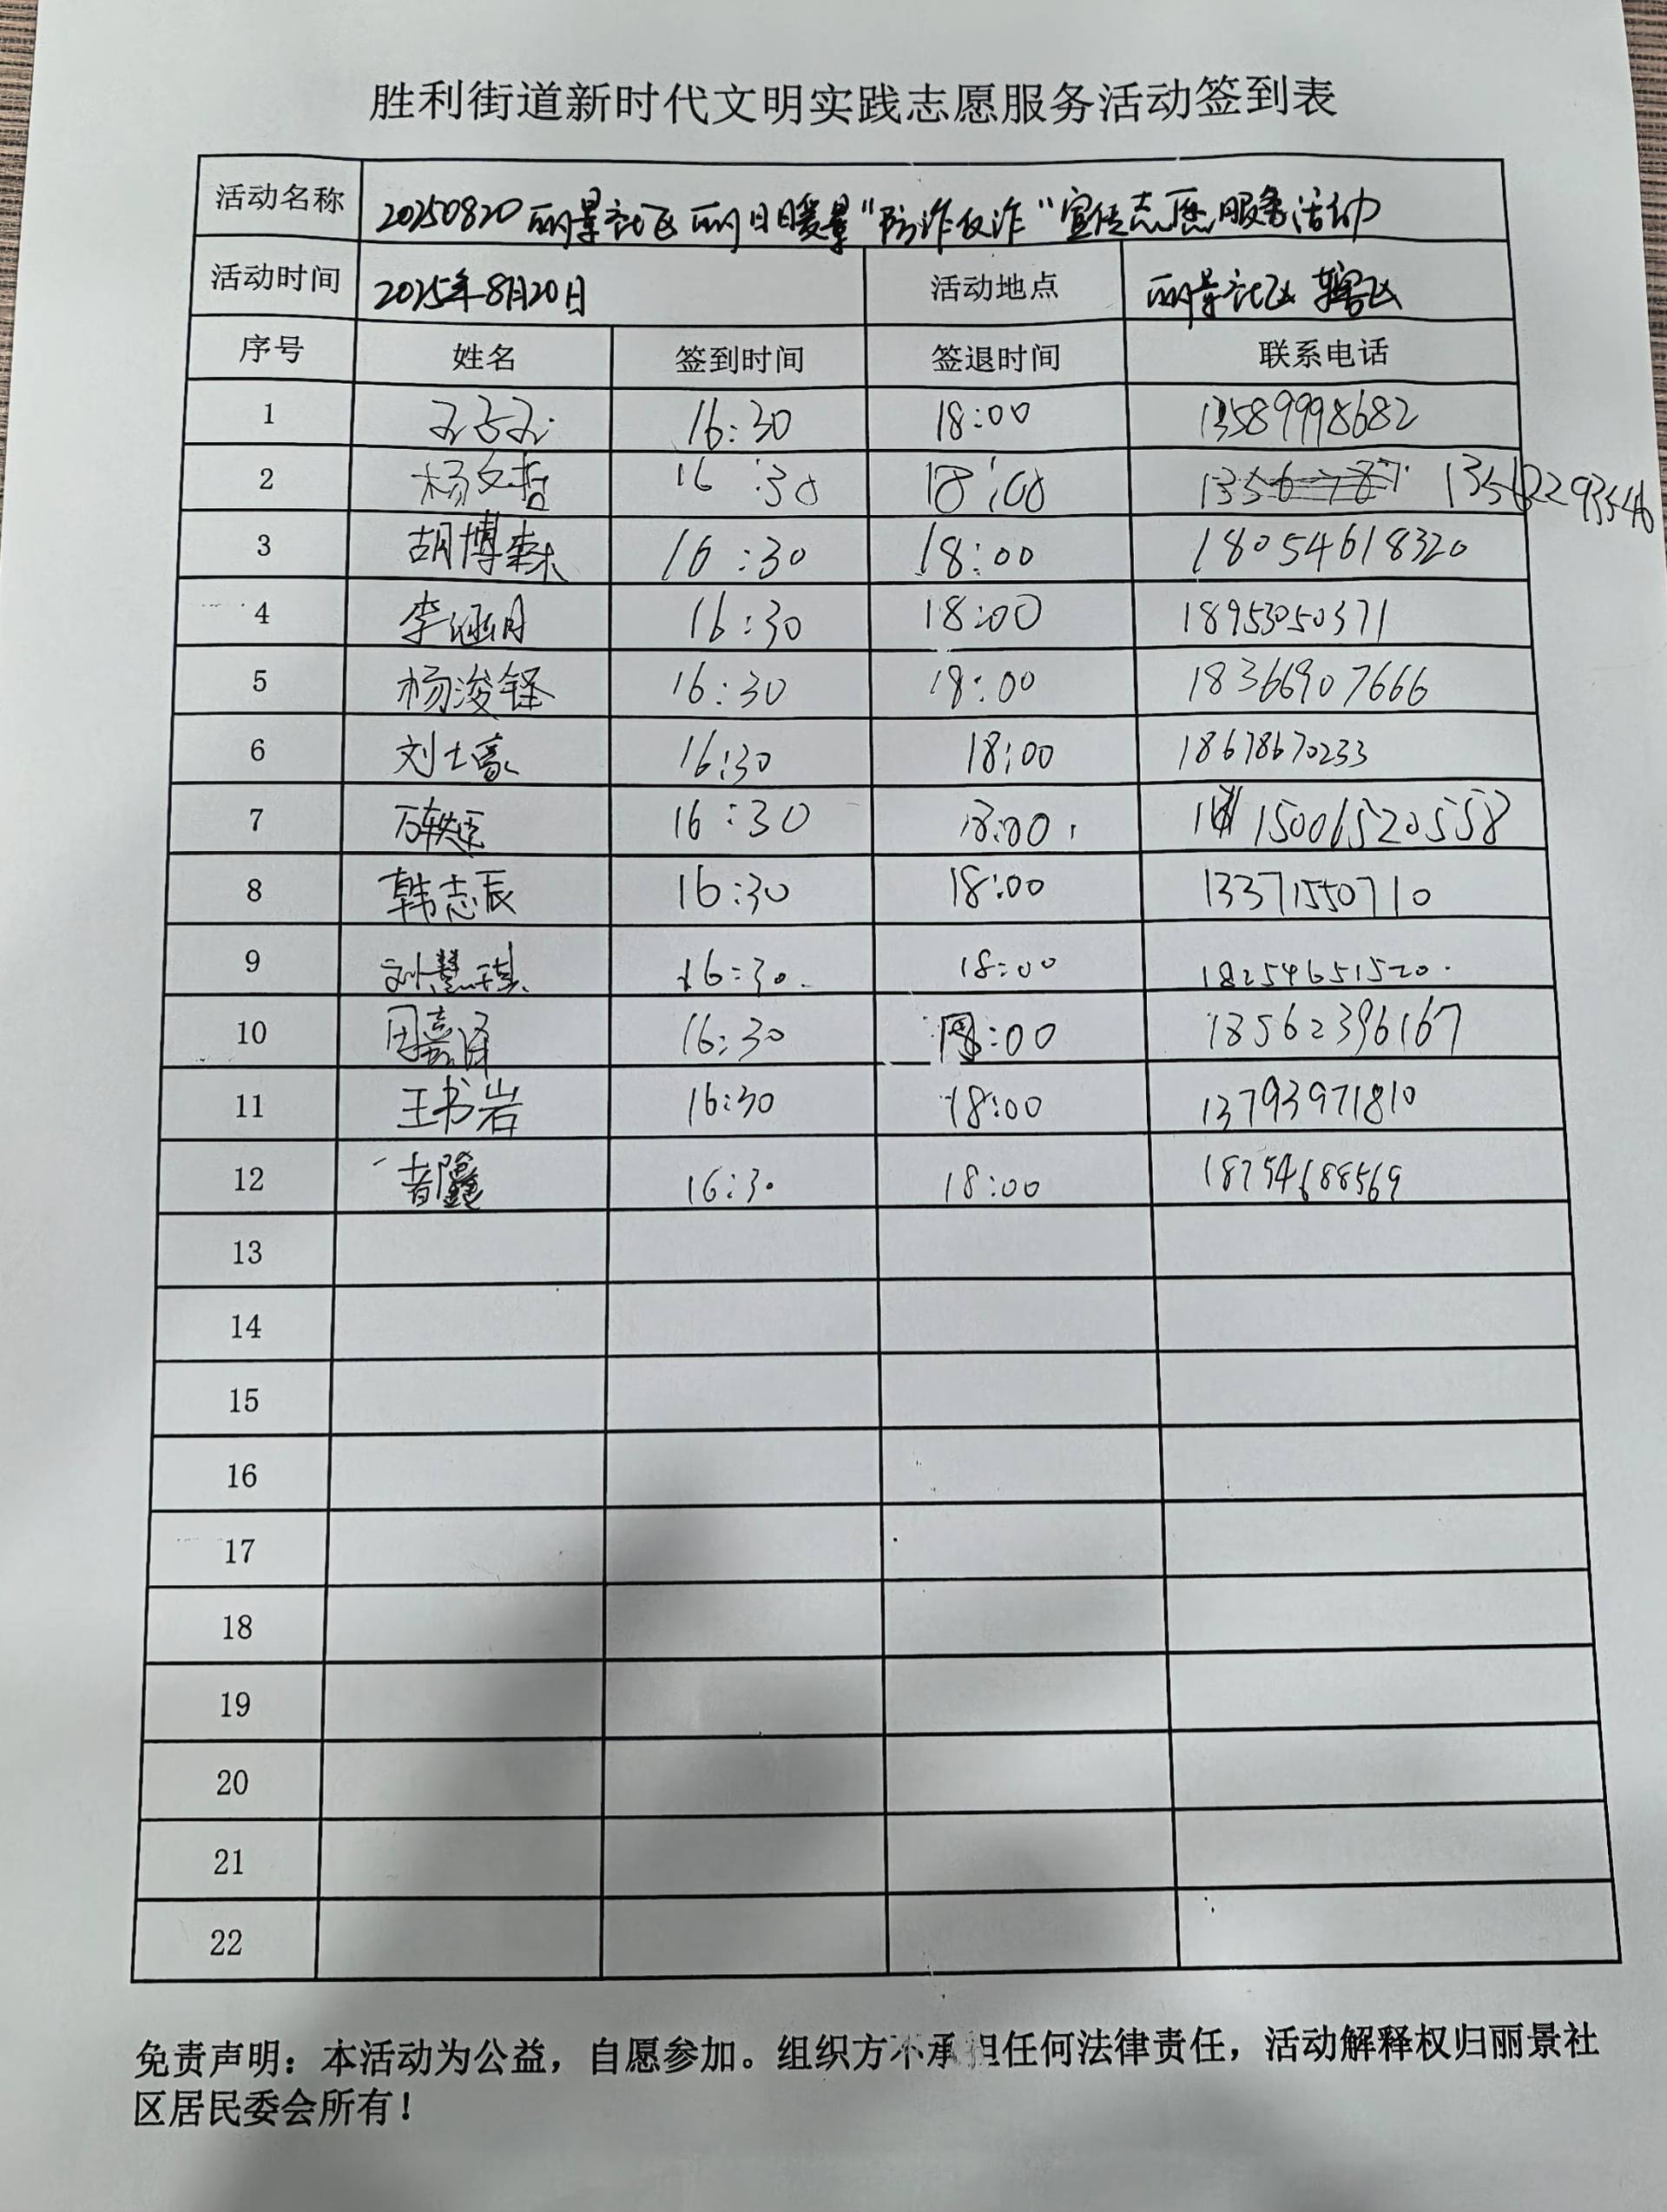 胜利街道新时代文明实践志愿服务活动签到表
活动名称 20250820丽景社区丽日暖景“防诈反诈”宣传志愿服务活动
活动时间 2025年8月20日 活动地点 丽景社区辖区
序号 姓名 签到时间 签退时间 联系电话
1 16:30 18:00 13589998682
2 杨文哲 16:30 18:00 13562293546
3 胡博森 16:30 18:00 18054618320
4 李涵月 16:30 18:00 18953050371
5 杨浚铎 16:30 18:00 18366907666
6 刘士豪 16:30 18:00 18678670233
7 16:30 18:00 15006520558
8 韩志辰 16:30 18:00 13371550710
9 刘慧琪 16:30 18:00 18254651520
10 周嘉译 16:30 18:00 18562396167
11 王书岩 16:30 18:00 13793971810
12 16:30 18:00 18754688569
13
14
15
16
17
18
19
20
21
22
免责声明：本活动为公益，自愿参加。组织方不承担任何法律责任，活动解释权归丽景社
区居民委会所有！